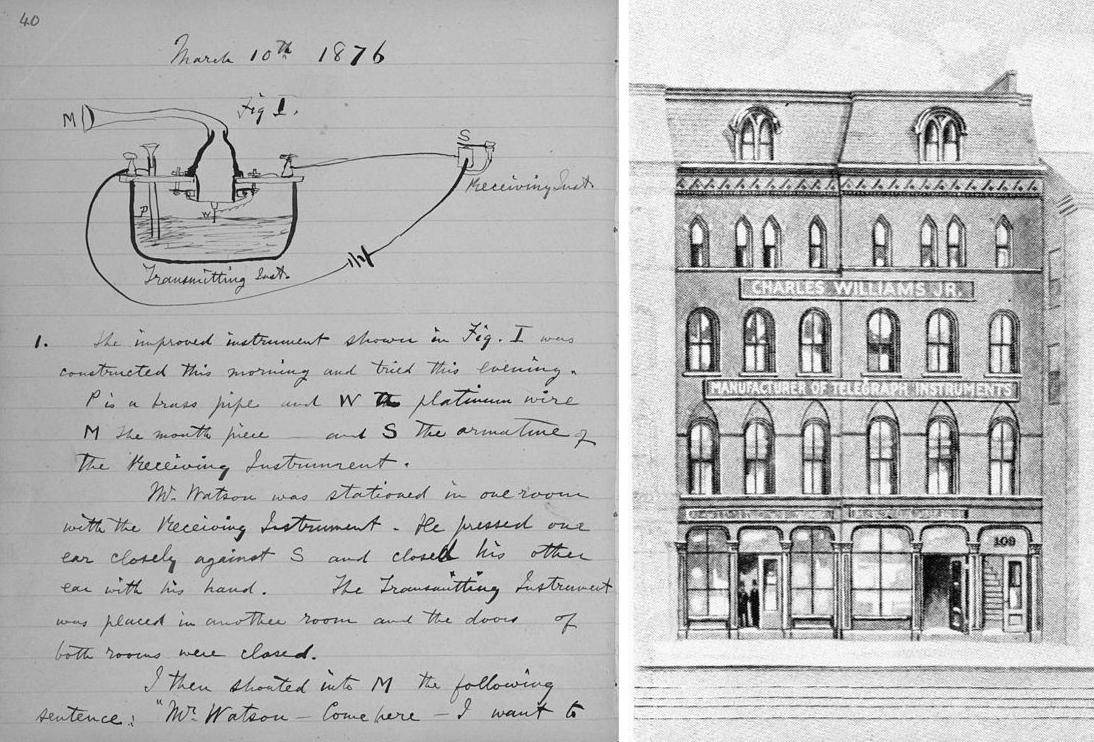 40
March 10th 1876
Fig 1.
M
S
Receiving Inst.
P
W
Transmitting Inst.
1. The improved instrument shown in Fig. I was
constructed this morning and tried this evening.
P is a brass pipe and W the platinum wire
M the mouth piece — and S the armature of
the Receiving Instrument.
Mr. Watson was stationed in one room
with the Receiving Instrument. He pressed one
ear closely against S and closed his other
ear with his hand. The Transmitting Instrument
was placed in another room and the doors of
both rooms were closed.
I then shouted into M the following
sentence: "Mr. Watson — Come here — I want to
CHARLES WILLIAMS JR.
MANUFACTURER OF TELEGRAPH INSTRUMENTS
109